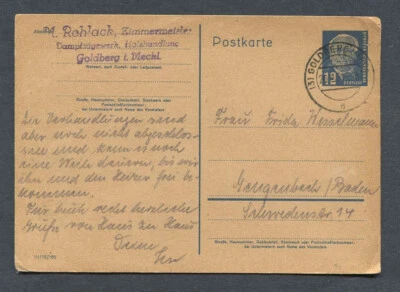 Rehlack, Zimmermeister
Dampfsägewerk, Holzhandlung
Goldberg i. Meckl.
Wohnort, auch Zustell- oder Leitpostamt
Straße, Hausnummer, Gebäudeteil, Stockwerk oder
Postschließfachnummer;
bei Untermietern auch Name des Vermieters
Die Verhandlungen sind
aber noch nicht abgeschlos-
sen und kann es noch
eine Weile dauern, bis wir
ihn und den
kommen.
Für heute recht herzliche
Grüße von Haus zu Haus
Deine
Postkarte
(3) GOLDBERG
12
Frau Frida Wesselmann
Gengenbach/Baden
Schwedenstr. 14
Straße, Hausnummer, Gebäudeteil, Stockwerk oder Postschließfachnummer;
bei Untermietern auch Name des Vermieters